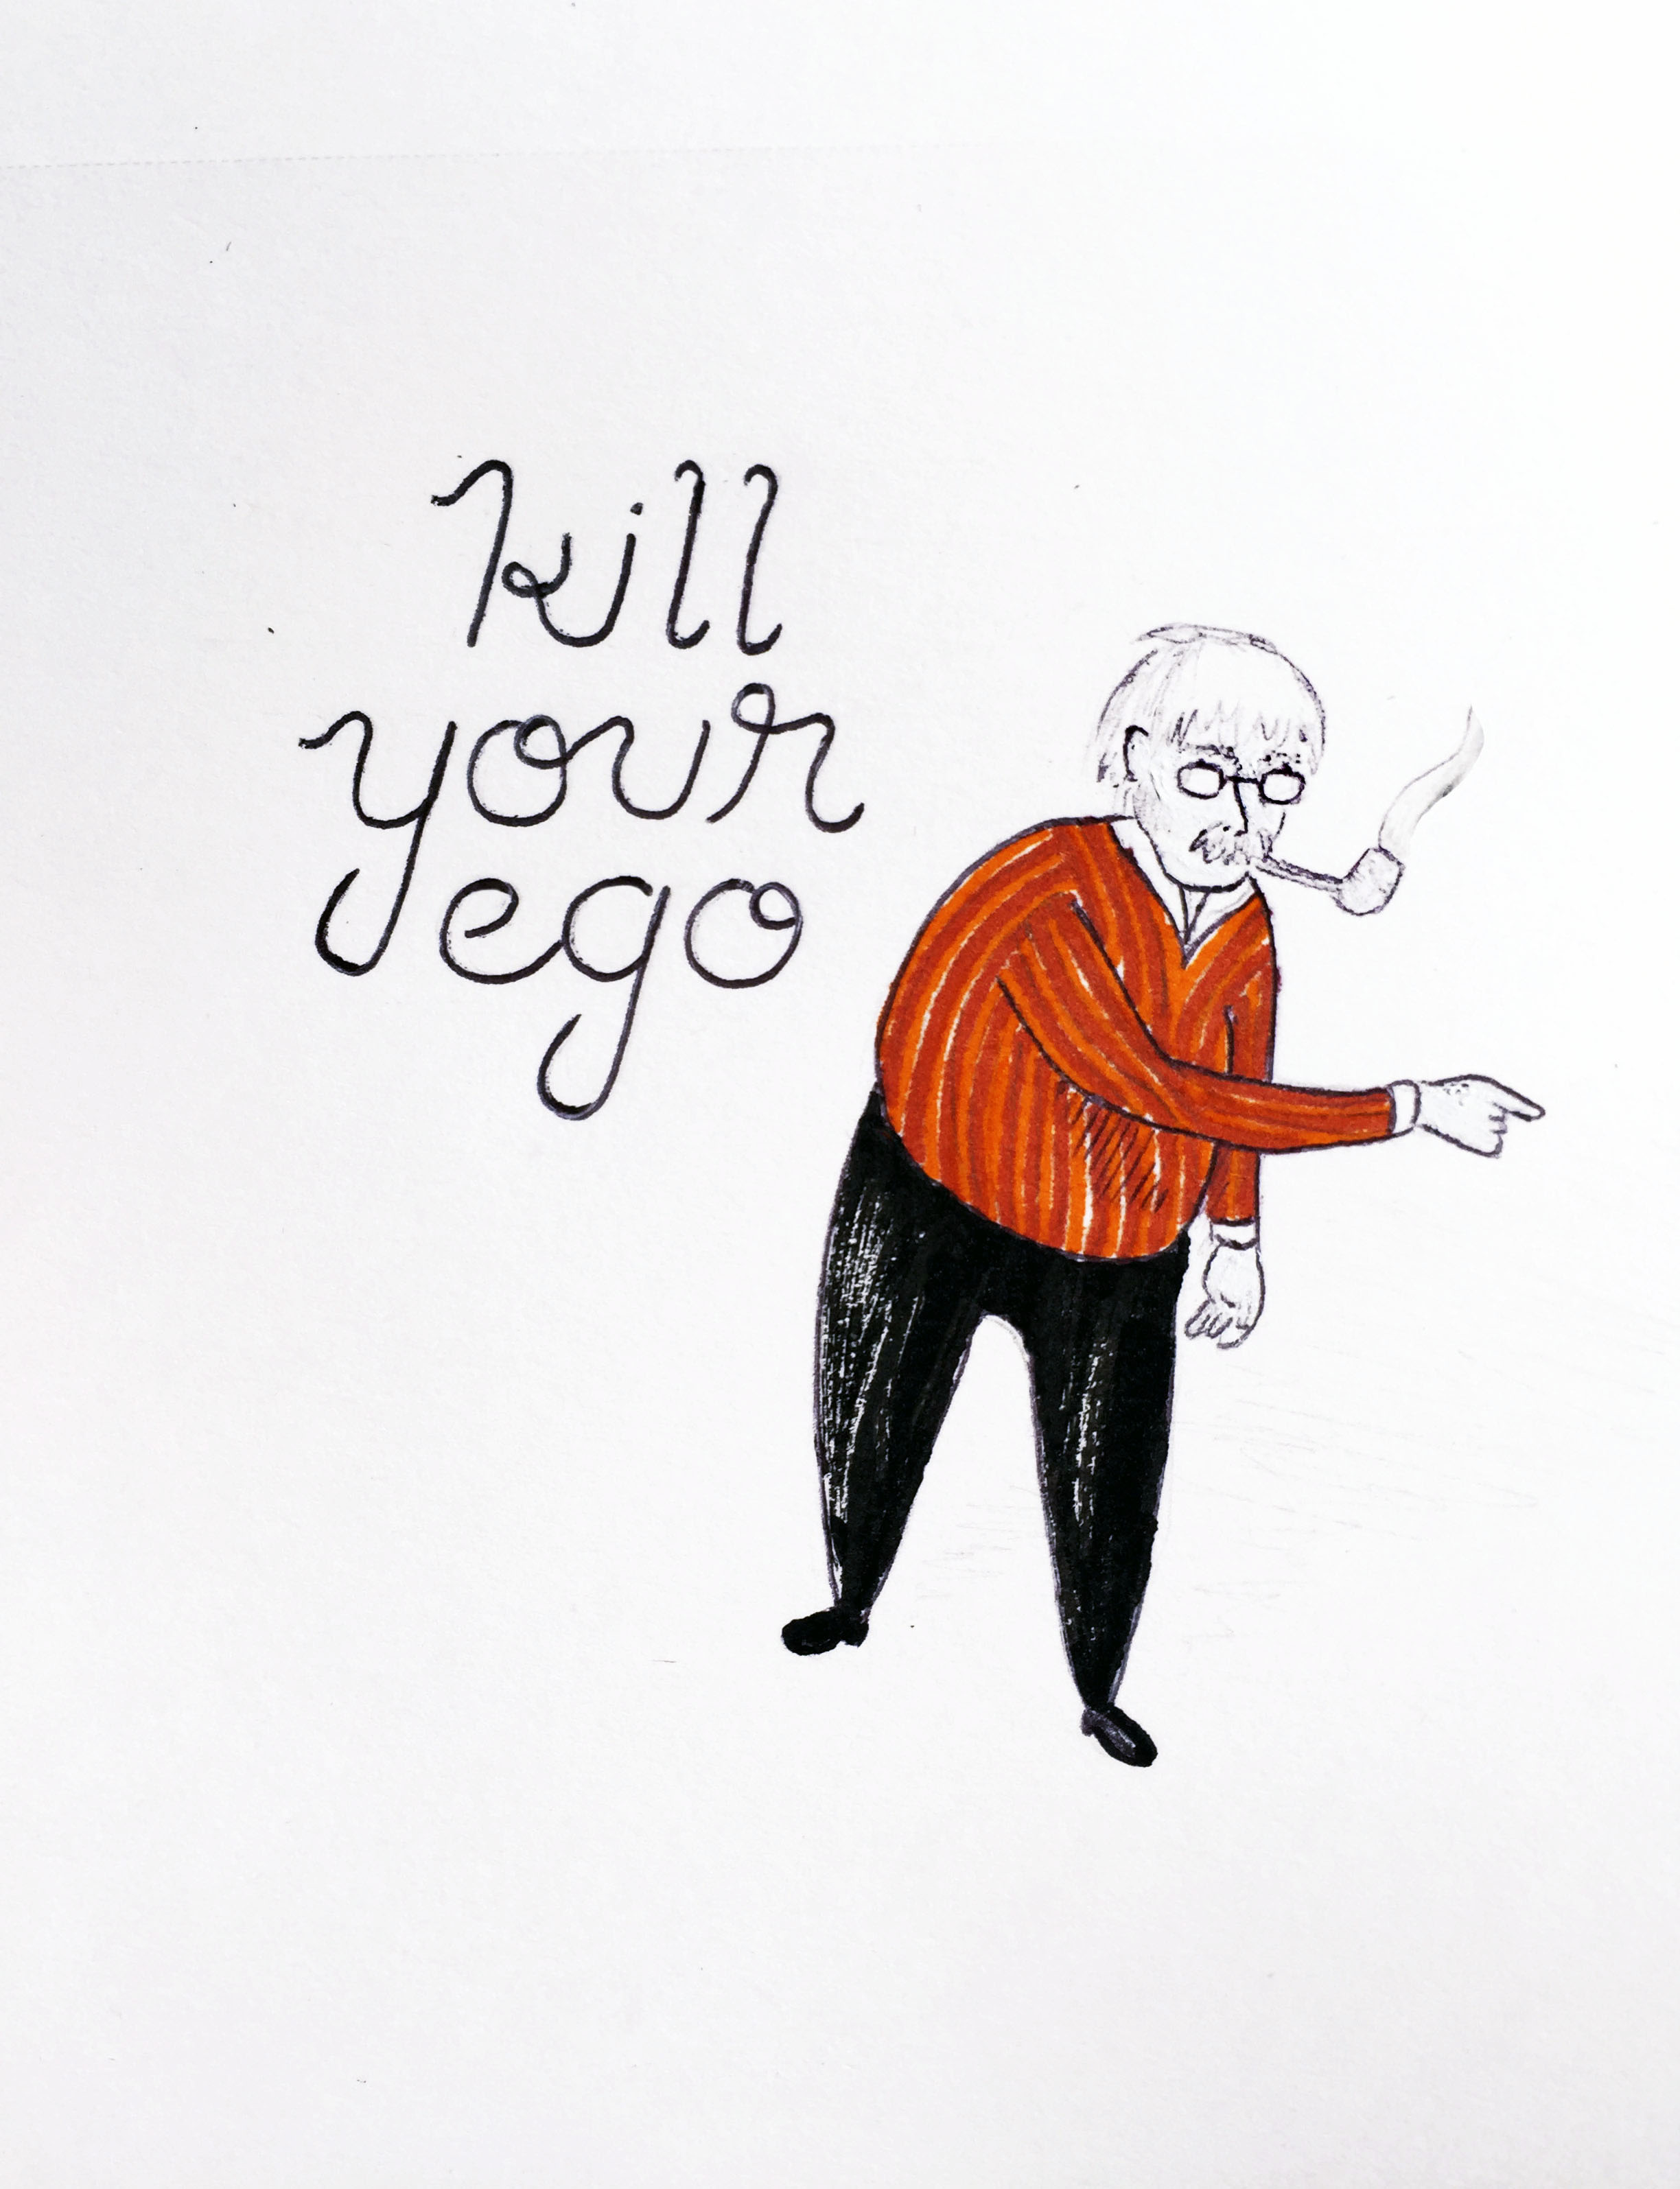 kill
your
ego